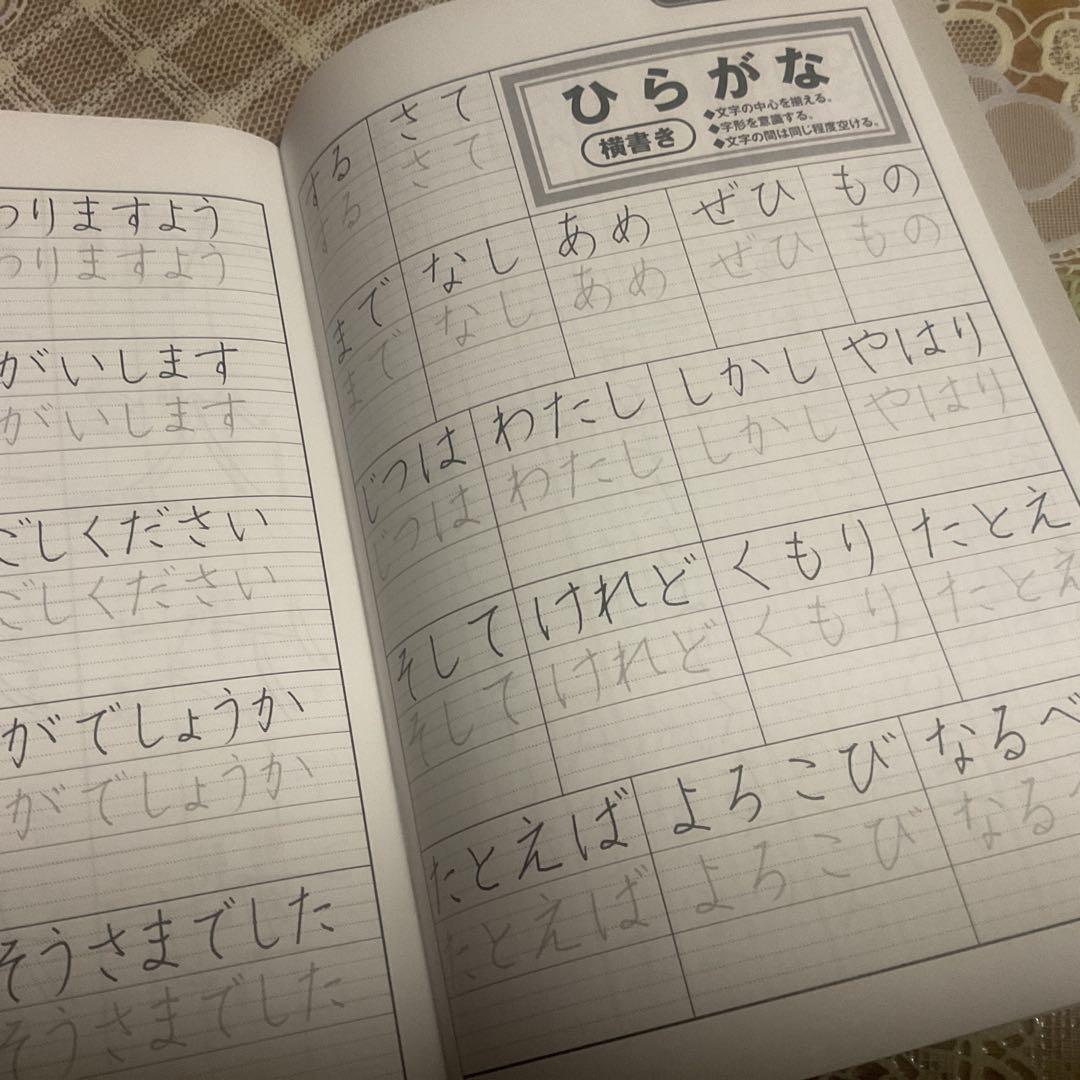 つりますよう
つりますよう
がいします
がいします
ごしください
ごしください
がでしょうか
がでしょうか
そうさまでした
そうさまでした
ひらがな
横書き
◆文字の中心を揃える。
◆字形を意識する。
◆文字の間は同じ程度空ける。
する さて
する さて
まで なし あめ ぜひ もの
まで なし あめ ぜひ もの
じつは わたし しかし やはり
じつは わたし しかし やはり
そして けれど くもり たとえ
そして けれど くもり たとえ
たとえば よろこび なるべ
たとえば よろこび なるべ